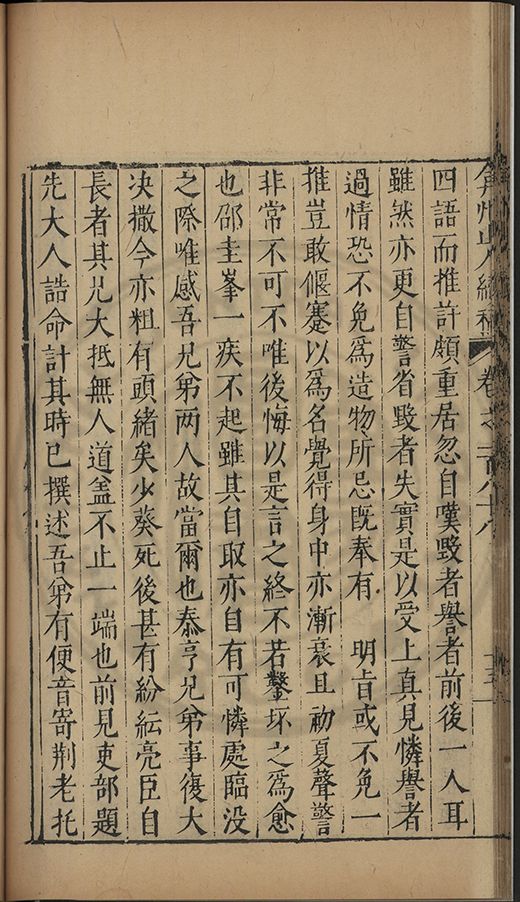 四語而推許頗重居忽自嘆毀者譽者前後一人耳
雖然亦更自警省毀者失實是以受上真見憐譽者
過情恐不免為造物所忌旣奉有　明旨或不免一
推豈敢偃蹇以為名覺得身中亦漸衰且初夏聲警
非常不可不唯後悔以是言之終不若鑿坏之為愈
也邵圭峯一疾不起雖其自取亦自有可憐處臨没
之際唯感吾兄弟两人故當爾也泰亨兄弟事復大
决撒今亦粗有頭緒矣少葵死後甚有紛紜亮臣自
長者其兄大抵無人道盖不止一端也前見吏部題
先大人誥命計其時已撰述吾弟有便音寄荆老托
弇州山人續稿 卷之一百八十八
十五